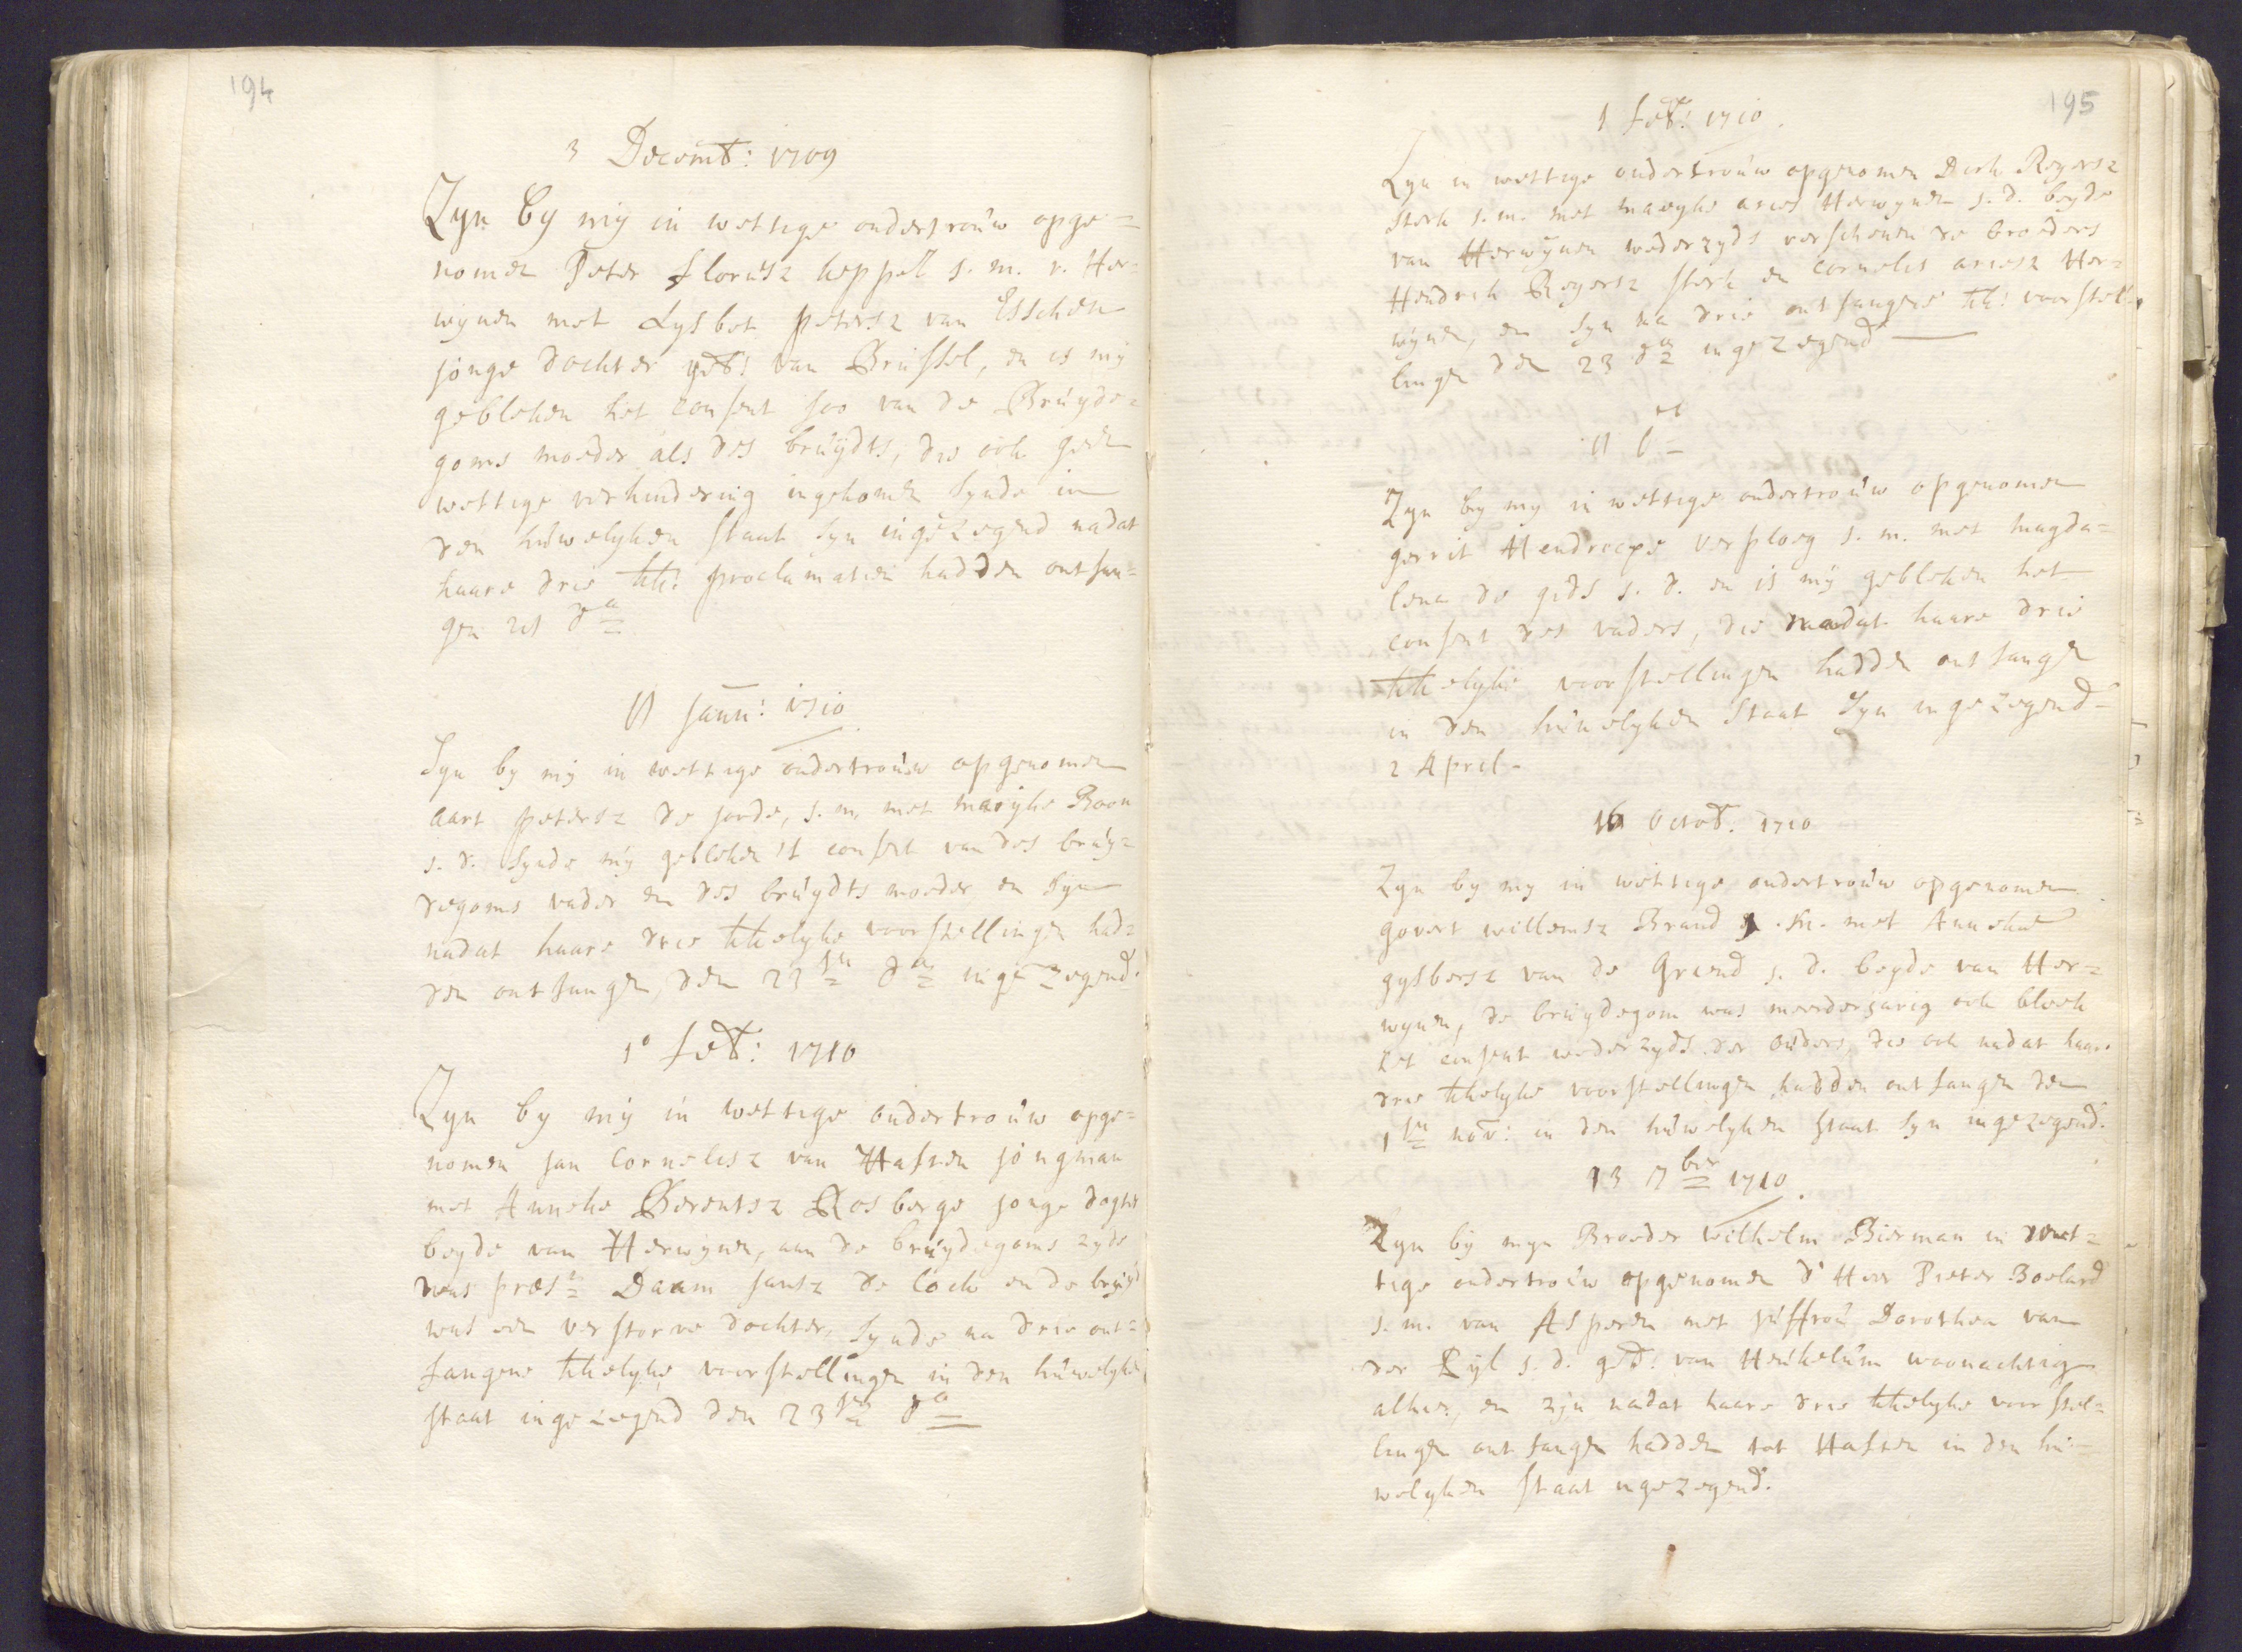 194
3 Decemb: 1709
Zyn by mij in wettige ondertrouw opge=
nomen Peter Florisz keppel j. m. v. Her=
wynen met Lysbet petersz van Esschen
jonge dochter geb: van Brussel, en is mij
gebleken het consent soo van de Bruyde=
goms moeder als des bruydts, die ook geen
wettige verhindering ingekomen synde in
den huwelyken staat syn ingezegend nadat
haare drie kk: proclamatien hadden ontfan=
gen 21 da
11 Jann: 1710
Syn by mij in wettige ondertrouw opgenomen
aart petersz de jonde, j. m. met Marijke Boon
j. d. synde mij gebleken 't consent van des bruy=
degoms vader en des bruydts moeder en syn
nadat haare drie kkelyke voorstellingen had=
den ontfangen, den 23sten da ingezegend.
1o feb: 1710
Zyn by mij in wettige ondertrouw opge=
nomen jan Cornelisz van Haften jongman
met Anneke Berentsz Rosberge jonge dogter
beyde van Herwynen, aan de bruydegoms zyde
was præs: Daam jansz de Cock en de bruyd
was een verstorve dochter, synde na drie ont=
fangene kkelyke voorstellingen in den huwelyken
staat ingezegend den 23sten da
195
1 feb: 1710.
Zyn in wettige ondertrouw opgenomen Dirk Rogersz
Sterk j. m. met maeyke aries Herwynen j. d. beyde
van Herwynen wederzyds verschenen de broeders
Hendrik Rogersz sterk en cornelis ariesz Her=
wynen, en syn na drie ontfangene kk: voorstel=
lingen den 23 da ingezegend
Zyn by my in wettige ondertrouw opgenomen
gerrit Hendricxe Verploeg j. m. met magda=
lena de gids j. d. en is mij gebleken het
consent des vaders, die nadat haare drie
kkelyke voorstellingen hadden ontfangen
in den huwelyken Staat Syn ingezegend
2 April
16 Octob. 1710
Zyn by my in wettige ondertrouw opgenomen
govert willemsz Brand j. m. met Anneke
gysbersz van de Griend j. d. beyde van Her=
wynen, de bruydegom was meerderjarig ook bleek
het consent wederzyds der ouders, die ook nadat haar
drie kkelyke voorstellingen hadden ontfangen den
1sten nov: in den huwelyken staat syn ingezegend.
13 7ber 1710.
Zyn by myn Broeder Wilhelm Bierman in wet=
tige ondertrouw opgenomen d' Heer Pieter Boelard
j. m. van Asperen met juffrou Dorothea van
der Ryl j. d. geb: van Heukelum woonachtig
alhier, en zyn nadat haare drie kkelyke voorstel=
lingen ontfangen hadden tot Haften in den hu=
welyken staat ingezegend.